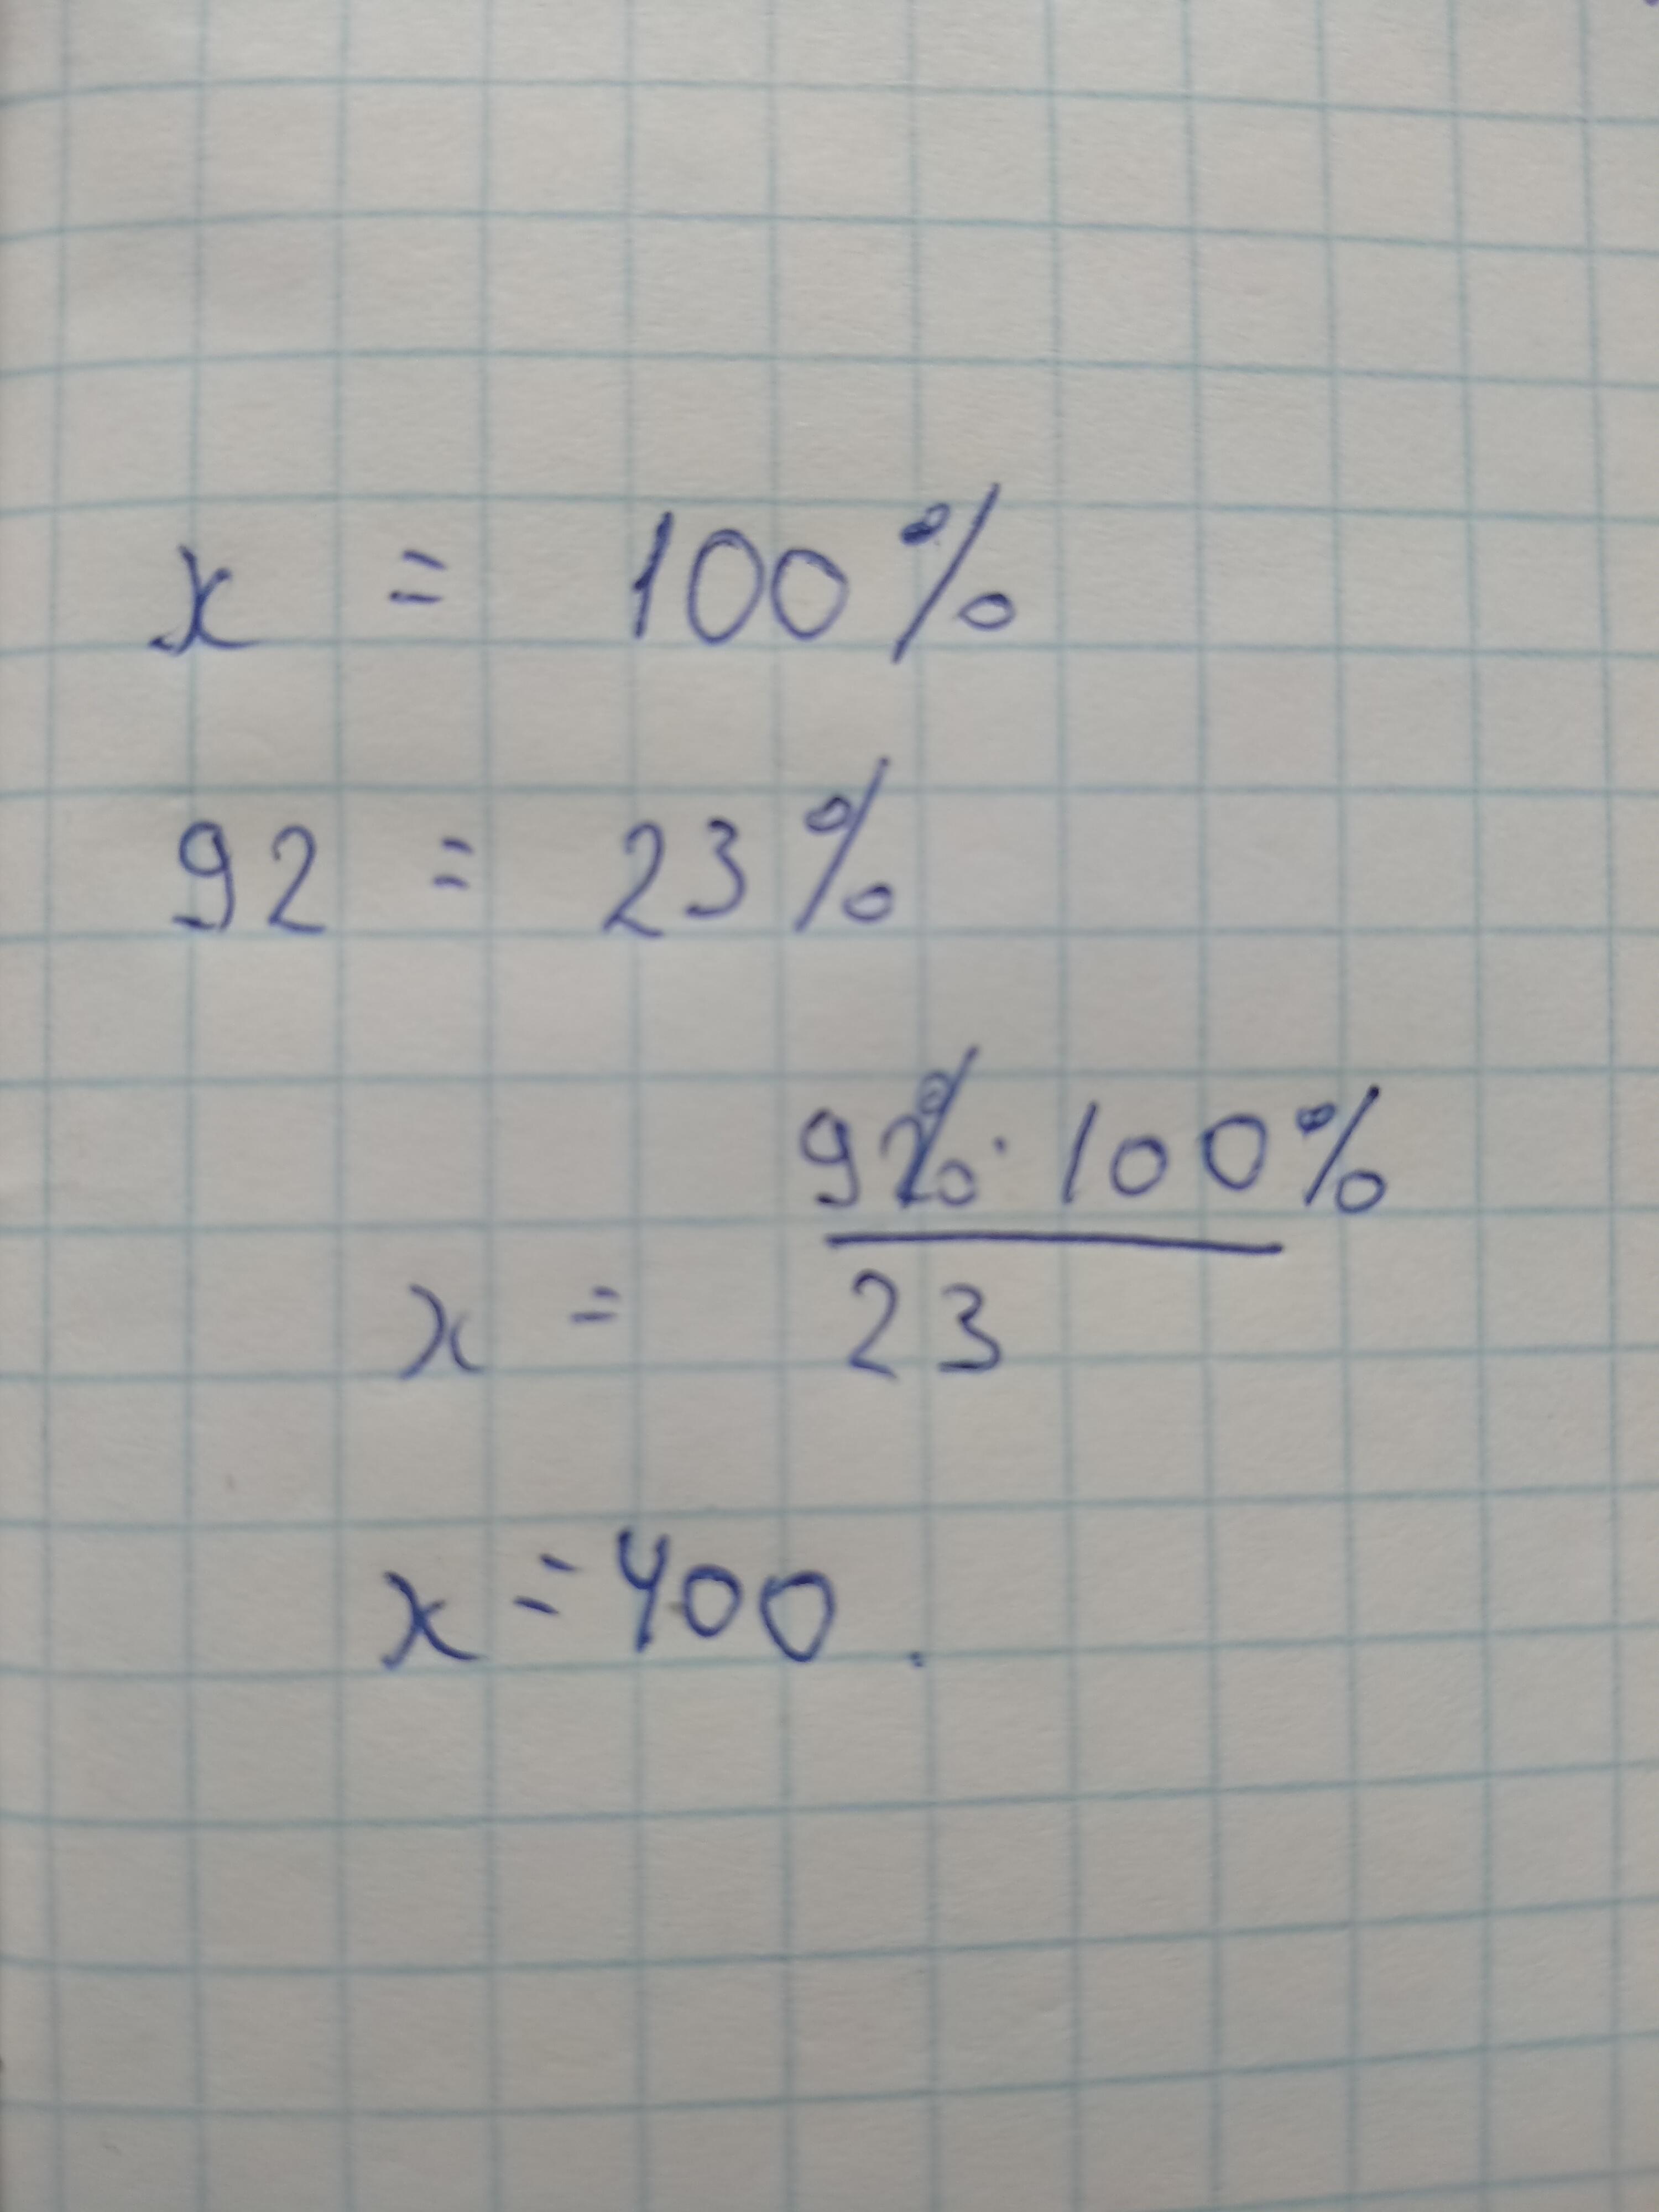 x = 100%
92 = 23%
x = 92% · 100% / 23
x = 400.